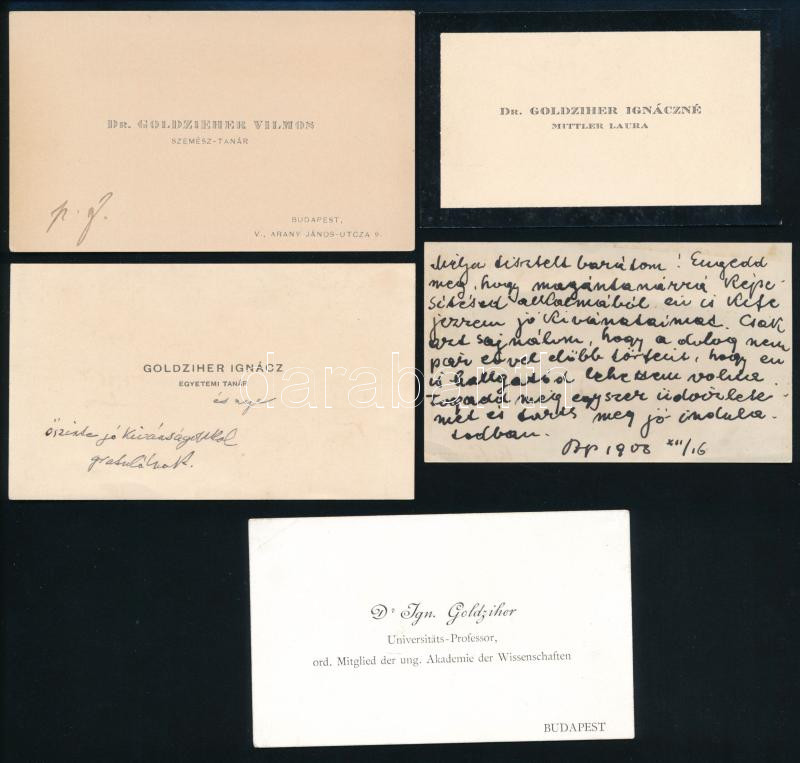 Dr. GOLDZIEHER VILMOS
SZEMÉSZ-TANÁR
p. f.
BUDAPEST,
V., ARANY JÁNOS-UTCZA 9.
Dr. GOLDZIHER IGNÁCZNÉ
MITTLER LAURA
GOLDZIHER IGNÁCZ
EGYETEMI TANÁR
és neje
őszinte jó kivánságokkal
gratulálnak.
tisztelt barátom! Engedd
meg, hogy magántanárrá képe-
sitésed alkalmából én is kife
jezzem jó kivánataimat. Csak
azt sajnálom, hogy a dolog nem
pár évvel előbb történt, hogy én
is hallgatód lehettem volna.
Fogadd még egyszer üdvözlete-
met és tarts meg jó indula-
todban.
Bp 1908 XII/16
Dr Ign. Goldziher
Universitäts-Professor,
ord. Mitglied der ung. Akademie der Wissenschaften
BUDAPEST
darabanth